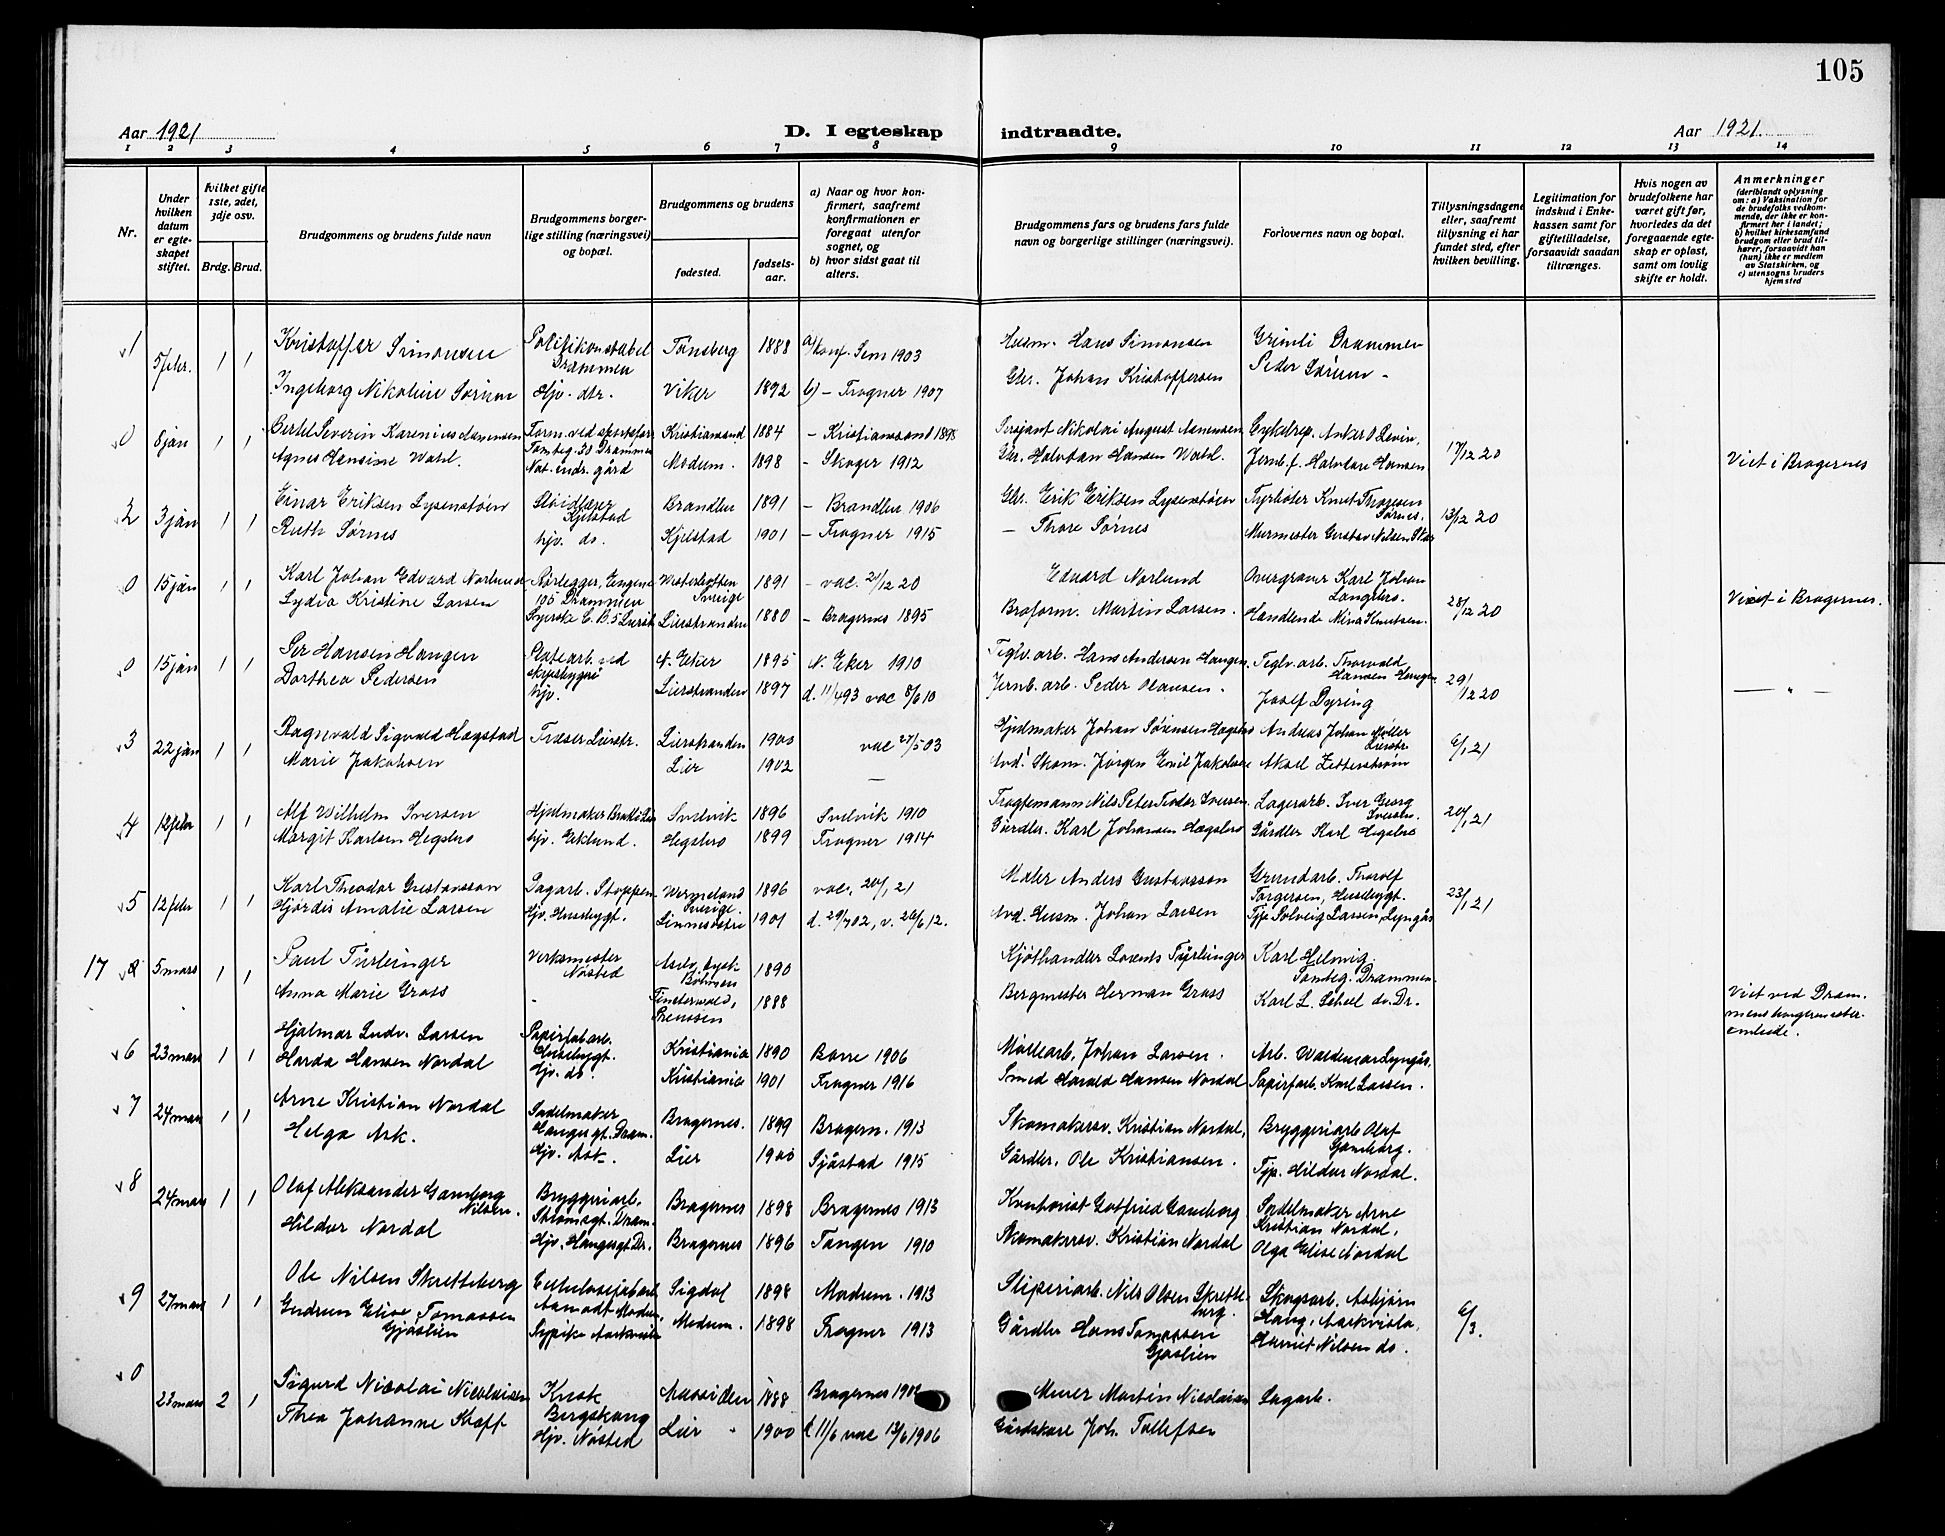 105
Aar 1921
D. I egteskap indtraadte.
Aar 1921.
1 2 3 4 5 6 7 8 9 10 11 12 13 14
Nr.
Under hvilken datum er egteskapet stiftet.
hvilket gifte 1ste, 2det, 3dje osv.
Brdg. Brud.
Brudgommens og brudens fulde navn
Brudgommens borgerlige stilling (næringsvei) og bopæl.
Brudgommens og brudens
fødested.
fødselsaar.
a) Naar og hvor konfirmert, saafremt konfirmationen er foregaat utenfor sognet, og
b) hvor sidst gaat til alters.
Brudgommens fars og brudens fars fulde navn og borgerlige stillinger (næringsvei).
Forlovernes navn og bopæl.
Tillysningsdagene eller, saafremt tillysning ei har fundet sted, efter hvilken bevilling.
Legitimation for indskud i Enkekassen samt for giftetilladelse, forsaavidt saadan tiltrænges.
Hvis nogen av brudefolkene har været gift før, hvorledes da det foregaaende egteskap er opløst, samt om lovlig skifte er holdt.
Anmerkninger (deriblandt oplysning om: a) Vaksination for de brudefolks vedkommende, der ikke er konfirmert her i landet; b) hvilket kirkesamfund brudgom eller brud tilhører, forsaavidt han (hun) ikke er medlem av Statskirken, og c) utensogns bruders hjemsted
1 5 febr. 1 1 Kristoffer Simonsen Politikonstabel Drammen Tønsberg 1888 a) konf. Sem 1903 Husm. Hans Simonsen Grimli Drammen
Ingeborg Nikoline Sørum Hjv. dtr. Viker 1892 b) - Frogner 1907 Gbr. Johan Kristoffersen Peder Sørum -
0 8 jan 1 1 Bertel Severin Karenius Asmunsen Form. ved Drammen Kristiansand 1884 - Kristianssand 1898 Sersjant Nikolai August Asmunsen Cykelrep. Anker O Levin, 17/12 20
Agnes Hansine Wahl. gård Modum. 1898 - Skoger 1912 Gbr. Halvdan Hansen Wahl. Jernb.f. Halvdare Hansen Viet i Bragernes
2 3 jan 1 1 Einar Eriksen Lysenstøen Kjelstad Brandbu 1891 - Brandbu 1906 Gbr. Erik Eriksen Lysenstøen Fyrbøter Knut Thoresen Sørnes. 13/12 20
Ruth Sørnes hjv. do. Kjelstad 1901 - Frogner 1915 - Thore Sørnes Murmester Gustav Nilsen
0 15 jan 1 1 Karl Johan Edvard Norlund Rørlegger, Engene 105 Drammen Vesterbotten Sverige 1891 - vac. 21/12 20 Edvard Norlund Overgraver Karl Johan 28/12 20
Lydia Kristine Larsen Lierstranden 1880 - Bragernes 1895 Broform. Martin Larsen. Handlende Mina Knutsen. Viet i Bragernes.
0 15 jan 1 1 Per Hansen Haugen ved skipsbygeri N. Eker 1895 N. Eker 1910 Teglv. arb. Hans Andersen Haugen Teglv. arb. Thorvald Hansen Haugen 29/12 20
Dorthea Pedersen hjv. Lierstranden 1897 vac 8/6 10 Jernb. arb. Peder Olausen. Josef Dyring — „ —
3 22 jan 1 1 Ragnvald Sigvald Hægstad Fræser Lierstr. Lierstranden 1900 vac 27/5 03 Hjulmaker Johan Sørensen Andreas Johan Møller Lierstr. 6/1 21
Marie Jakobsen Lier 1902 — Avd. Skom. Jørgen Emil Jakobsen Aksel Zetterstrøm
4 12 febr 1 1 Alf Wilhelm Iversen Hjulmaker Svelvik 1896 Svelvik 1910 Nils Peter Teodor Iversen. Lagerarb. Iver Georg Iversen. 20/1 21
Margit Karlsen Hegsbro hjv. Eklund. Hegsbro 1899 Frogner 1914 Gårdbr. Karl Johansen Hægsbro Gårdbr Karl Hegsbro
5 12 febr 1 1 Karl Theodor Gustavsson Sagarb. Stoppen Wermeland Sverige. 1896 vac. 20/1 21 Maler Anders Gustavsson Grundarb. Thorolf Torgersen, Husebygt. 23/1 21
Hjørdis Amalie Larsen Hjv. Husebygt. Linnesøstre 1901 d. 29/7 02, v. 26/6 12. Avd. Husm. Johan Larsen Tjp Solveig Larsen, Lyngås
17 5 mars 1 1 Paul Türlinger Verksmester Nøsted Böhmen 1890 Kjøthandler Lorents Türlinger Karl Helwig Tomteg. Drammen
Anna Marie Grass - Finsterwald, Preussen 1888 Bergmester Herman Grass Karl L. Scheel do. Dr. Viet ved Drammens borgermesterembede.
6 23 mars 1 1 Hjalmar Ludv. Larsen Papirfabarb. Husebygt. Kristiania 1890 Borre 1906 Johan Larsen. Arb. Waldemar Lyngås,
Harda Hansen Nordal Hjv. do. Kristiania 1901 Frogner 1916 Smed Harald Hansen Nordal Papirfarb. Karl Larsen.
7 24 mars 1 1 Arne Kristian Nordal Sadelmaker Haugesgt. Dram. Bragernes. 1899 Bragern. 1913 Skomakersv. Kristian Nordal, Bryggeriarb Olaf Gamborg.
Helga Ask. Hjv. Ask. Lier 1900 Sjåstad 1915 Gårdbr. Ole Kristiansen. Tjp. Hildur Nordal.
8 24 mars 1 1 Olaf Aleksander Gamborg Nilsen. Bryggeriarb. Strømsgt. Dram. Bragernes 1898 Bragernes 1913 Kontorist Gotfried Gamborg Sadelmaker Arne Kristian Nordal,
Hildur Nordal Hjv. Haugesgt Dr. Bragernes 1896 Tangen 1910 Skomakersv. Kristian Nordal Olga Elise Nordal
9 27 mars 1 1 Ole Nilsen Skretteberg Cellulosefabarb Aamodt Modum, Sigdal 1898 Modum. 1913 Sliperiarb. Nils Olsen Skretteberg. Skogsarb. Asbjørn Haug, Aarkvisla, 6/3.
Gudrun Elise Tomassen Gjøslien Sypike Aarkvisla Modum. 1898 Frogner 1913 Gårdbr Hans Tomassen Gjøslien Harriet Nilsen do.
0 22 mars 2 1 Sigurd Nicolai Nicolaisen Kusk Bergskaug Aassiden 1888 Bragernes 1902 Murer Martin Nicolaisen Lagarb.
Thea Johanne Kopp Hjv. Nøsted Lier 1900 d 11/6 vac 13/6 1906 Gårdskare Joh. Tollefsen